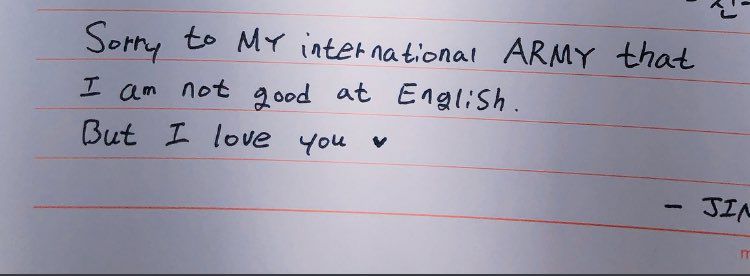 Sorry to MY international ARMY that
I am not good at English.
But I love you ♥
- JIN